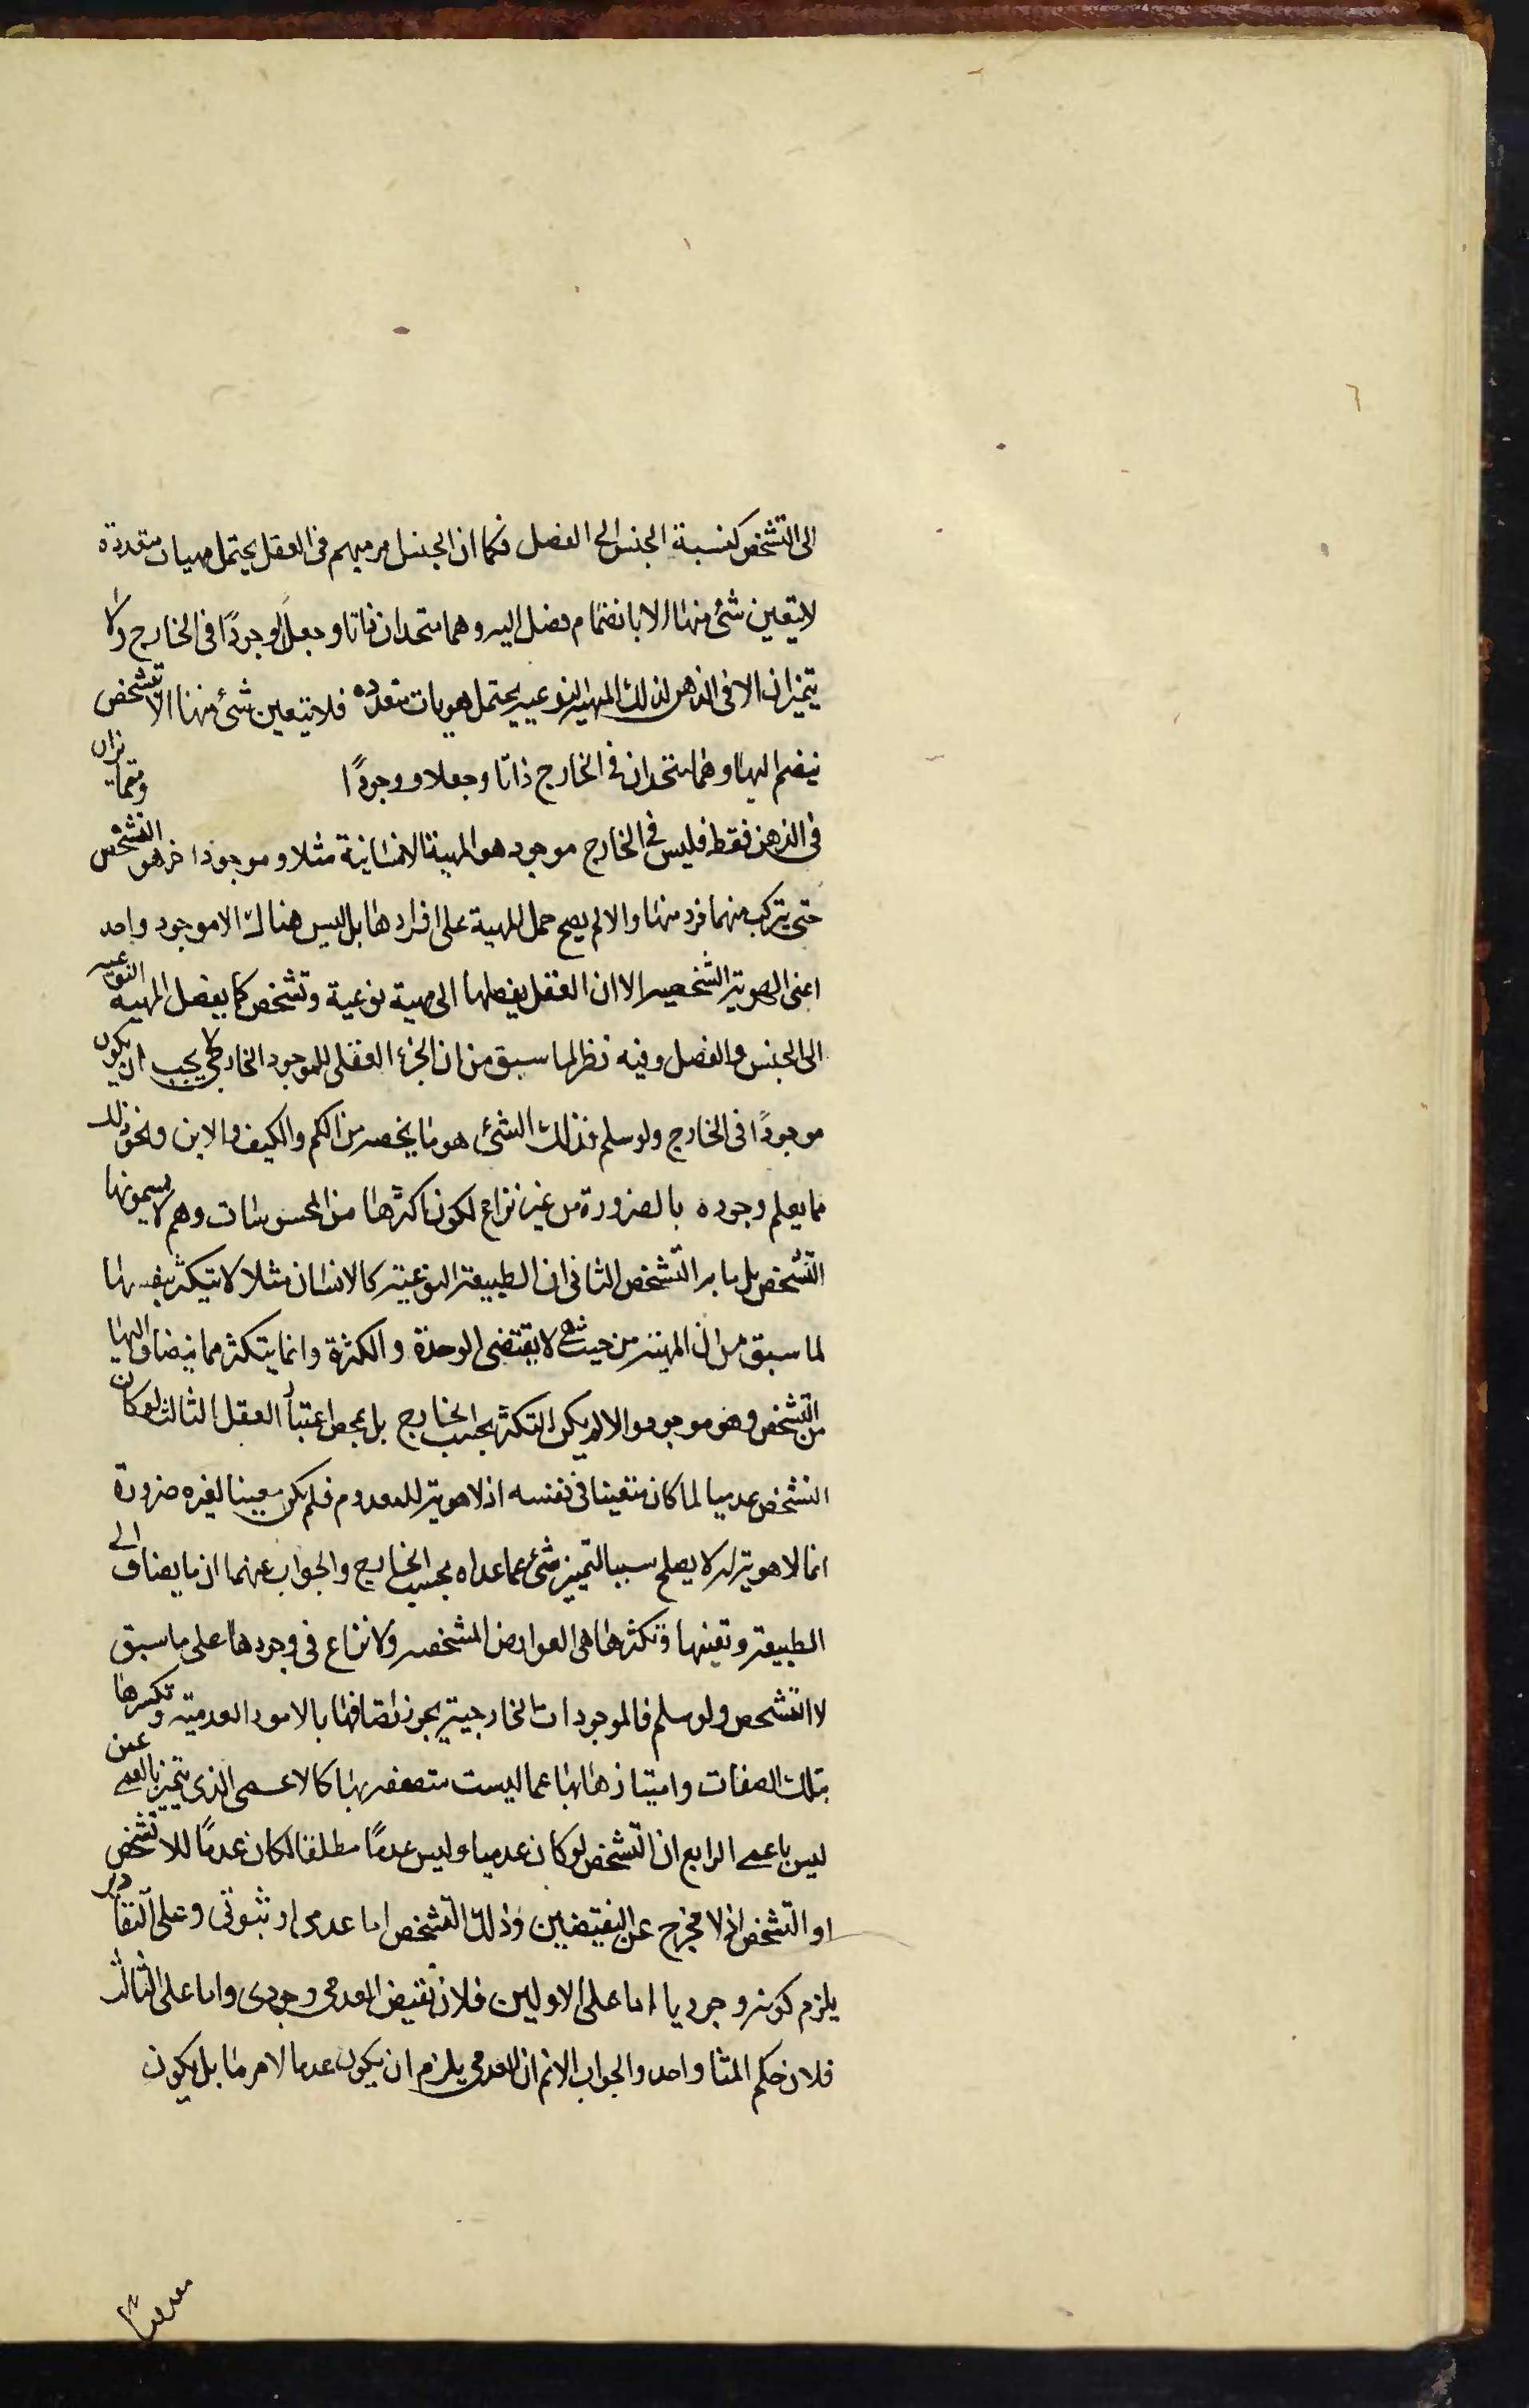 ٦
الى التشخص كنسبة الجنس الى الفصل فكما ان الجنس امر مبهم فى العقل يحتمل مهيات متعددة
لا يتعين شئ منها الا بانضمام فصل اليه وهما متحدان ذاتا وجعلا ووجودًا فى الخارج ولا
يتميزان الا فى الذهن كذلك المهية النوعيه يحتمل هويات متعدده فلا يتعين شئ منها الا بتشخص
ينضم اليها وهما متحدان فى الخارج ذاتا وجعلا ووجودًا ومتمايزان
فى الذهن فقط فليس فى الخارج موجود هو المهية الانسانية مثلا وموجود اخر هو التشخص
حتى يتركب منهما فرد منها والا لم يصح حمل المهية على افرادها بل ليس هناك الا موجود واحد
اعنى الهوية الشخصيه الا ان العقل يفصلها الى مهية نوعية وتشخص كما يفصل المهيه النوعيه
الى الجنس والفصل وفيه نظر لما سبق من ان الجزء العقلى للموجود الخارجى لا يجب ان يكون
موجودًا فى الخارج ولو سلم فذلك الشئ هو ما يخصه من الكم والكيف والاين ونحو ذلك
مما يعلم وجوده بالضرورة من غير نزاع لكون اكثرها من المحسوسات وهم لا يسمونها
التشخص بل ما به التشخص الثانى ان الطبيعة النوعية كالانسان مثلا لا يتكثر بنفسها
لما سبق من ان المهية من حيث هى لا يقتضى الوحدة والكثرة وانما يتكثر مما ينضاف اليها
من التشخص وهو موجود والا لم يكن التكثر بحسب الخارج بل بمحض اعتبار العقل الثالث لو كان
التشخص عدميا لما كان متعينا فى نفسه اذ لا هوية للمعدوم فلم يكن معينا لغيره ضرورة
ان ما لا هوية له لا يصلح سببا لتميز شئ عما عداه بحسب الخارج والجواب عنهما ان ما يضاف الى
الطبيعة وتعينها وتكثرها هى العوارض المشخصه ولا نزاع فى وجودها على ما سبق
لا التشخص ولو سلم فالموجودات الخارجية يجوز اتصافها بالامور العدمية وتكثرها
بتلك الصفات وامتيازها بها عما ليست متصفه بها كالاعمى الذى يتميز بالعمى عمن
ليس باعمى الرابع ان التشخص لو كان عدميا وليس عدمًا مطلقا لكان عدمًا للاتشخص
او التشخص اذ لا مخرج عن النقيضين وذلك التشخص اما عدمى او ثبوتى وعلى التقادير
يلزم كونه وجوديا اما على الاولين فلان نقيض العدمى وجودى واما على الثالث
فلان حكم المثل واحد والجواب لانم ان العدمى يلزم ان يكون عدما لامر ما بل يكون